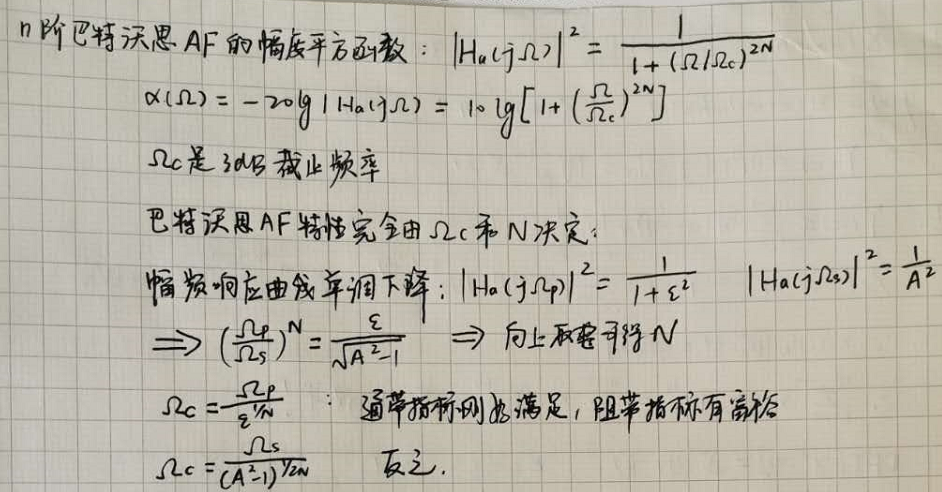 n阶巴特沃思AF的幅度平方函数：|Ha(jΩ)|² = 1/(1+(Ω/Ωc)^{2N})
α(Ω) = -20lg|Ha(jΩ) = 10lg[1+(Ω/Ωc)^{2N}]
Ωc是3dB截止频率
巴特沃思AF特性完全由Ωc和N决定：
幅频响应曲线单调下降：|Ha(jΩp)|² = 1/(1+ε²) |Ha(jΩs)|² = 1/A²
⟹ (Ωp/Ωs)^N = ε/√(A²-1) ⟹ 向上取整可得N
Ωc = Ωp/ε^{1/N} ：通带指标刚好满足，阻带指标有富裕
Ωc = Ωs/(A²-1)^{1/2N} 反之.